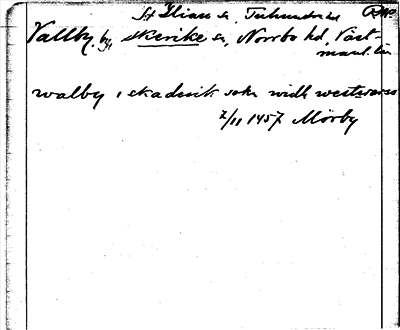 St Ilians sn, Tuhundra hd
Vallby, by, Skerike sn, Norrbo hd, Väst-
manl. län
walby i skaderik sokn widh westraros
2/11 1457 Mörby